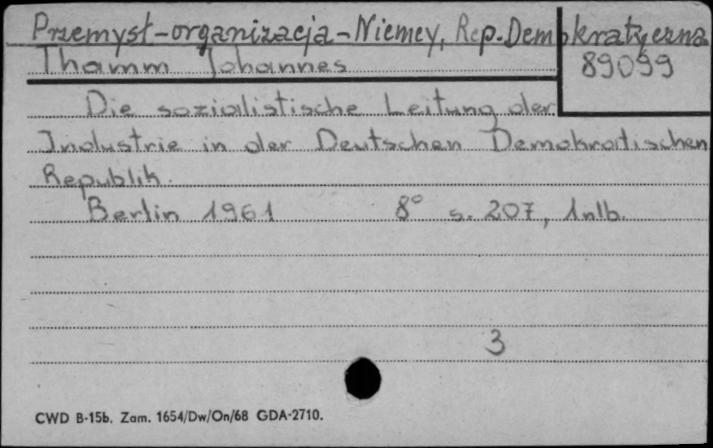 Przemysł-organizacja-Niemcy, Rep. Demokratyczna
Thamm Johannes
89099
Die sozialistische Leitung der
Industrie in der Deutschen Demokratischen
Republik.
Berlin 1961 8° s. 207, 1nlb.
3
CWD B-15b. Zam. 1654/Dw/On/68 GDA-2710.